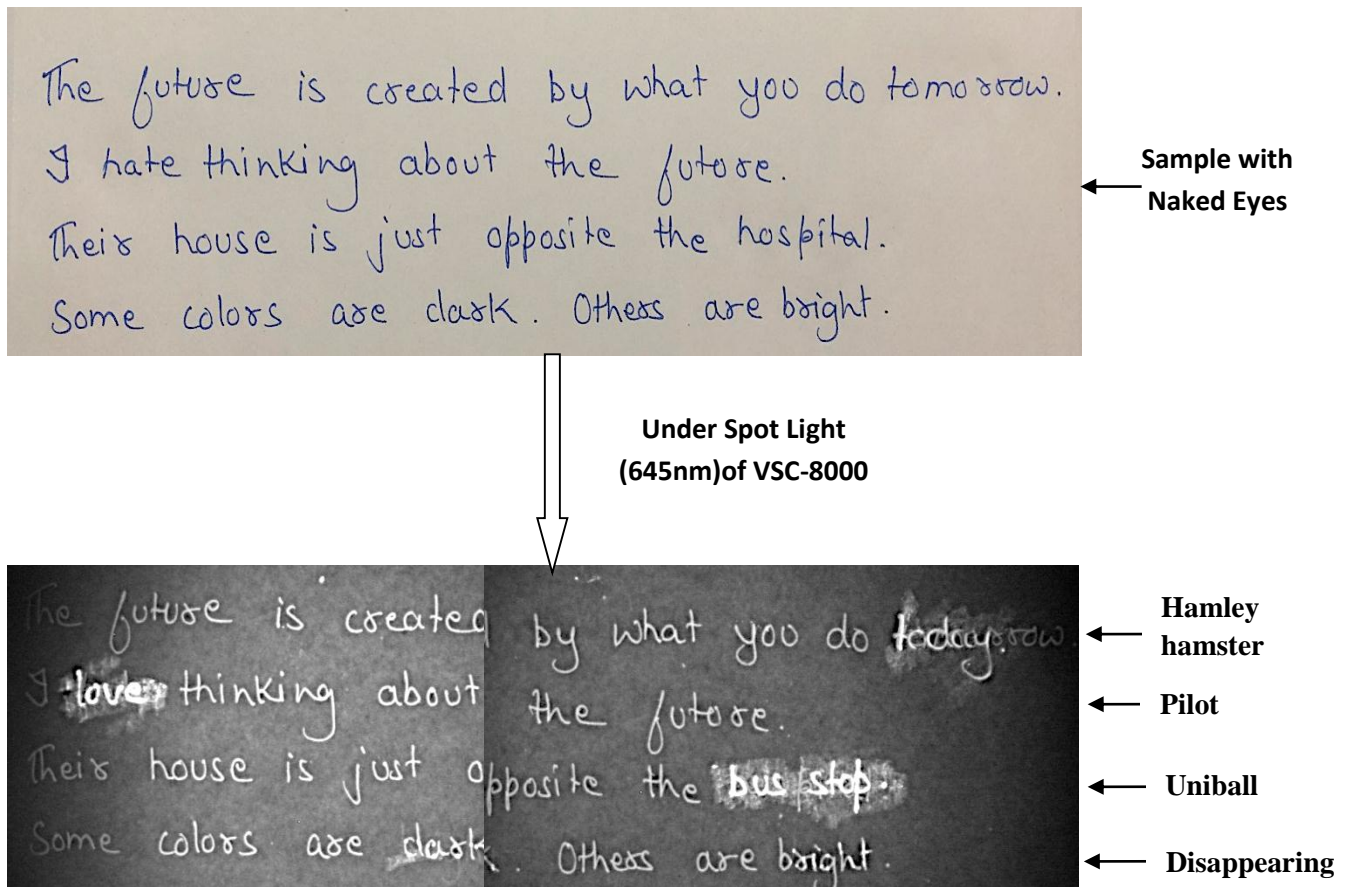 The future is created by what you do tomorrow.
I hate thinking about the future.
Their house is just opposite the hospital.
Some colors are dark. Others are bright.
Sample with
Naked Eyes
Under Spot Light
(645nm)of VSC-8000
The future is created by what you do today.row.
I love thinking about the future.
Their house is just opposite the bus stop.
Some colors are dark. Others are bright.
Hamley
hamster
Pilot
Uniball
Disappearing